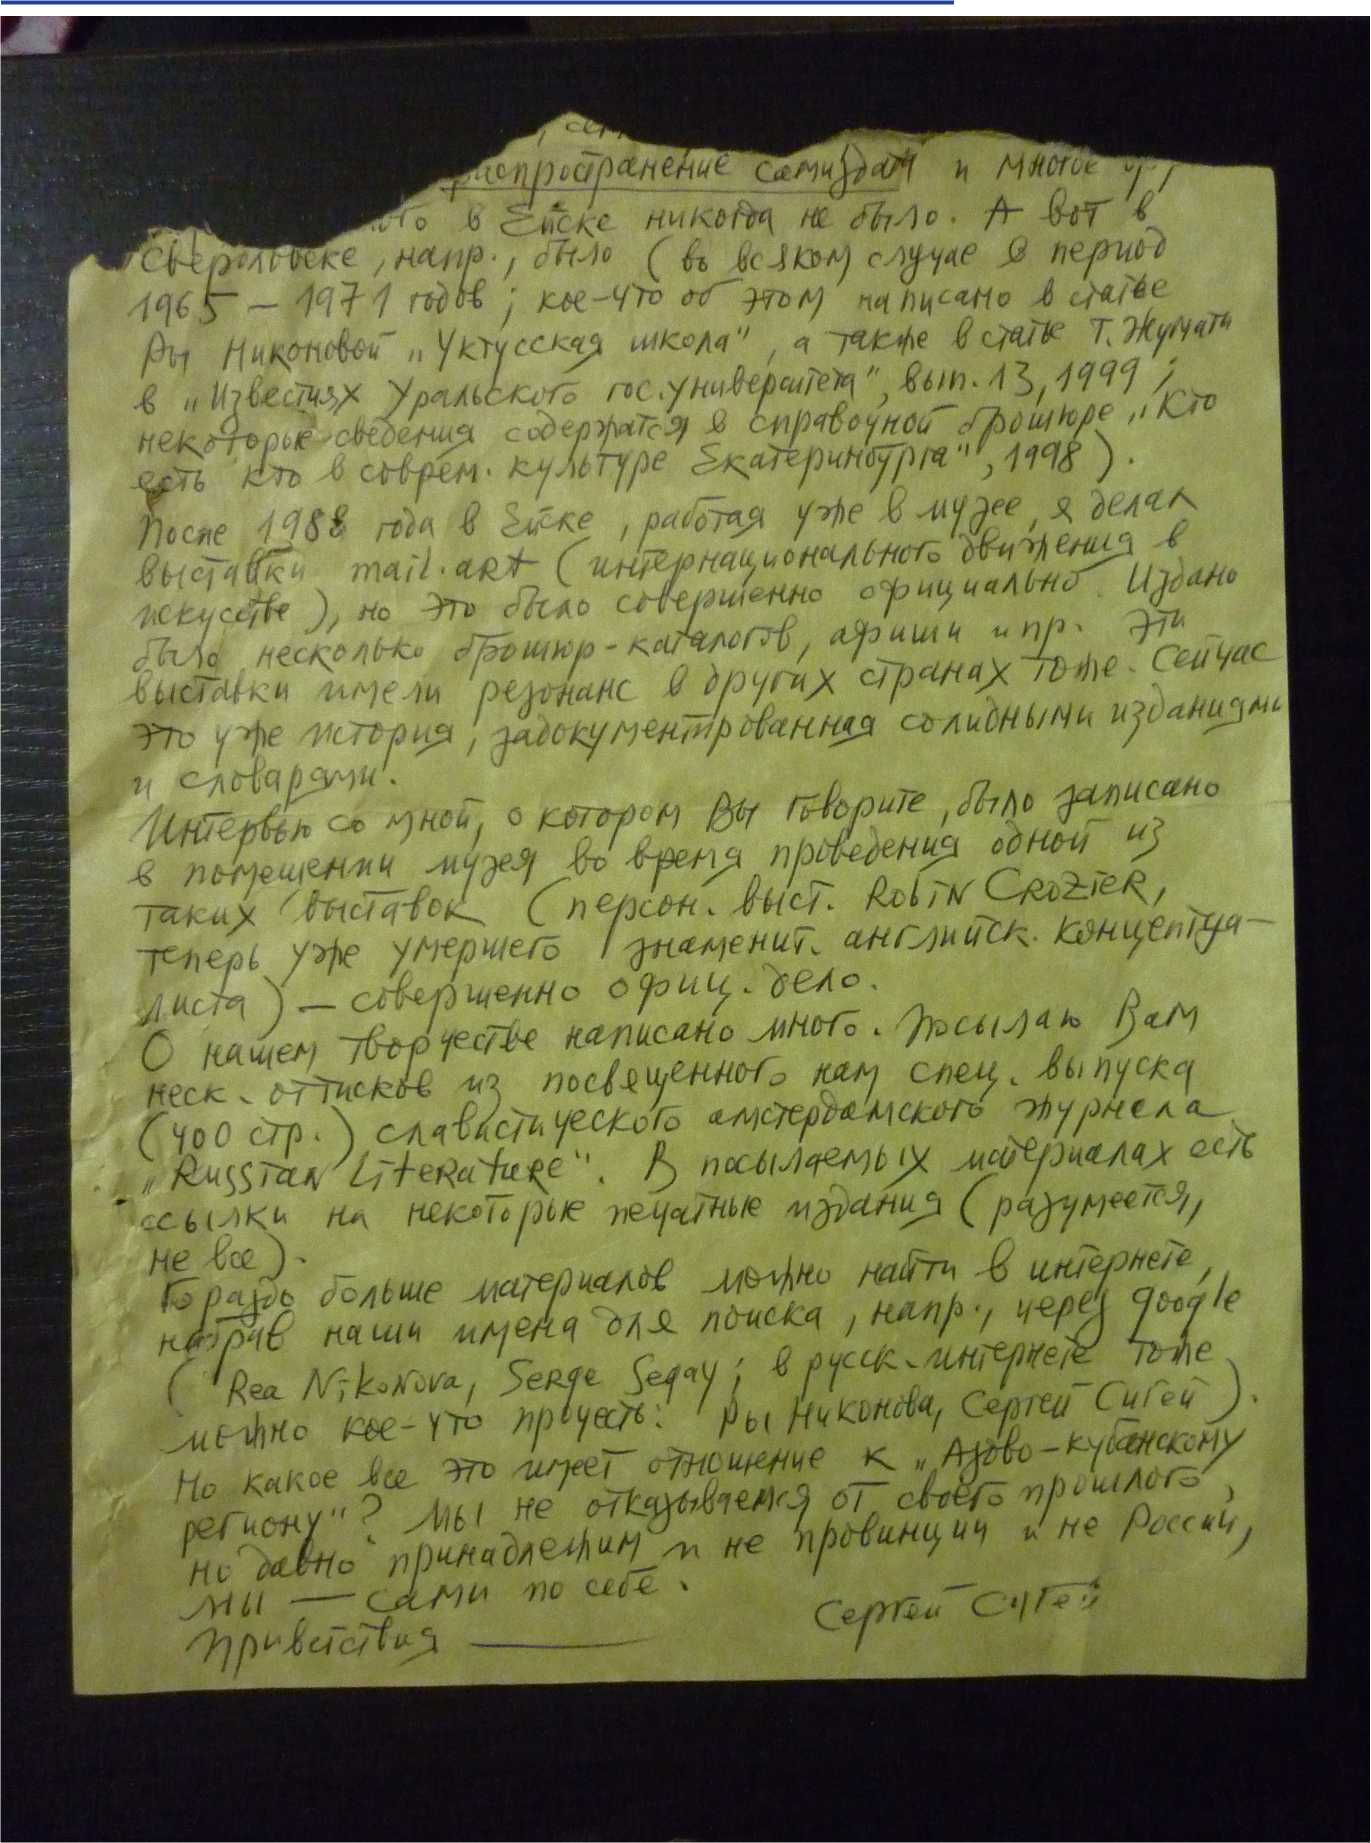 распространение самиздата и многое др,
в Ейске никогда не было. А вот в
Свердловске, напр., было (во всяком случае в период
1965 – 1971 годов; кое-что об этом написано в статье
Ры Никоновой „Уктусская школа", а также в статье Т. Жумати
в „Известиях Уральского гос. университета", вып. 13, 1999;
некоторые сведения содержатся в справочной брошюре „Кто
есть кто в соврем. культуре Екатеринбурга", 1998).
После 1988 года в Ейске, работая уже в музее, я делал
выставки mail-art (интернационального движения в
искусстве), но это было совершенно официально. Издано
было несколько брошюр-каталогов, афиши и пр. Эти
выставки имели резонанс в других странах тоже. Сейчас
это уже история, задокументированная солидными изданиями
и словарями.
Интервью со мной, о котором Вы говорите, было записано
в помещении музея во время проведения одной из
таких выставок (персон. выст. Robin Crozier,
теперь уже умершего знаменит. английск. концептуа-
листа) – совершенно офиц. дело.
О нашем творчестве написано много. Посылаю Вам
неск. оттисков из посвященного нам спец. выпуска
(400 стр.) славистического амстердамского журнала
„Russian Literature". В посылаемых материалах есть
ссылки на некоторые печатные издания (разумеется,
не все).
Гораздо больше материалов можно найти в интернете,
набрав наши имена для поиска, напр., через google
(Rea Nikonova, Serge Segay; в русск. интернете тоже
можно кое-что прочесть: Ры Никонова, Сергей Сигей).
Но какое все это имеет отношение к „Азово-кубанскому
региону"? Мы не отказываемся от своего прошлого,
но давно принадлежим и не провинции и не России,
мы – сами по себе.
Приветствия ——— Сергей Сигей